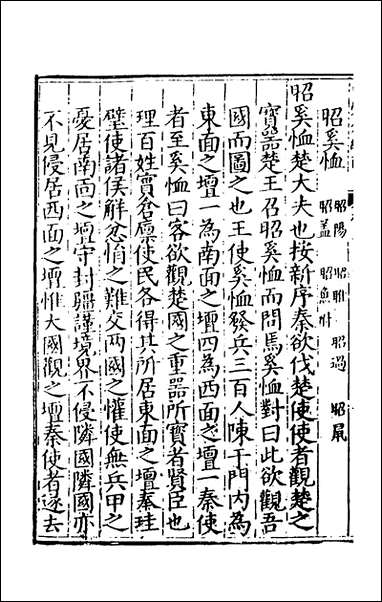 昭奚恤 昭陽 昭雎 昭過 昭鼠
昭蓋 昭魚
昭奚恤楚大夫也按新序秦欲伐楚使使者觀楚之
寳噐楚王召昭奚恤而問焉奚恤對曰此欲觀吾
國而圖之也王使奚恤發兵三百人陳于門内為
東面之壇一為南面之壇四為西面之壇一秦使
者至奚恤曰客欲觀楚國之重器所寳者賢臣也
理百姓實倉廩使民各得其所居東面之壇奉珪
璧使諸侯解忿悁之難交兩國之懽使無兵甲之
憂居南面之壇守封疆謹境界不侵隣國隣國亦
不見侵居西面之壇惟大國觀之壇秦使者遂去